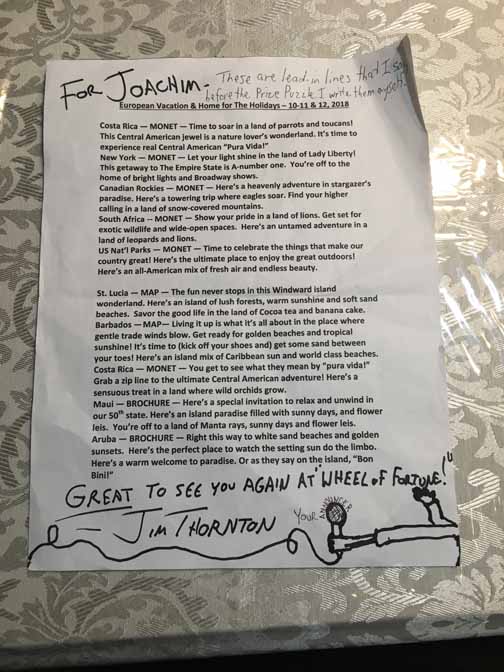 FOR JOACHIM- These are lead-in lines that I say
before the Prize Puzzle. I write them myself!
European Vacation & Home for The Holidays – 10-11 & 12, 2018
Costa Rica — MONET — Time to soar in a land of parrots and toucans!
This Central American jewel is a nature lover's wonderland. It's time to
experience real Central American "Pura Vida!"
New York — MONET — Let your light shine in the land of Lady Liberty!
This getaway to The Empire State is A-number one.  You're off to the
home of bright lights and Broadway shows.
Canadian Rockies — MONET — Here's a heavenly adventure in stargazer's
paradise. Here's a towering trip where eagles soar. Find your higher
calling in a land of snow-covered mountains.
South Africa -- MONET — Show your pride in a land of lions. Get set for
exotic wildlife and wide-open spaces.  Here's an untamed adventure in a
land of leopards and lions.
US Nat'l Parks — MONET — Time to celebrate the things that make our
country great! Here's the ultimate place to enjoy the great outdoors!
Here's an all-American mix of fresh air and endless beauty.
St. Lucia — MAP — The fun never stops in this Windward island
wonderland. Here's an island of lush forests, warm sunshine and soft sand
beaches.  Savor the good life in the land of Cocoa tea and banana cake.
Barbados — MAP— Living it up is what it's all about in the place where
gentle trade winds blow. Get ready for golden beaches and tropical
sunshine! It's time to (kick off your shoes and) get some sand between
your toes! Here's an island mix of Caribbean sun and world class beaches.
Costa Rica — MONET — You get to see what they mean by "pura vida!"
Grab a zip line to the ultimate Central American adventure! Here's a
sensuous treat in a land where wild orchids grow.
Maui — BROCHURE — Here's a special invitation to relax and unwind in
our 50th state. Here's an island paradise filled with sunny days, and flower
leis. You're off to a land of Manta rays, sunny days and flower leis.
Aruba — BROCHURE — Right this way to white sand beaches and golden
sunsets.  Here's the perfect place to watch the setting sun do the limbo.
Here's a warm welcome to paradise. Or as they say on the island, "Bon
Bini!"
GREAT TO SEE YOU AGAIN AT "WHEEL OF FORTUNE!"
YOUR ANNOUNCER
- JIM THORNTON